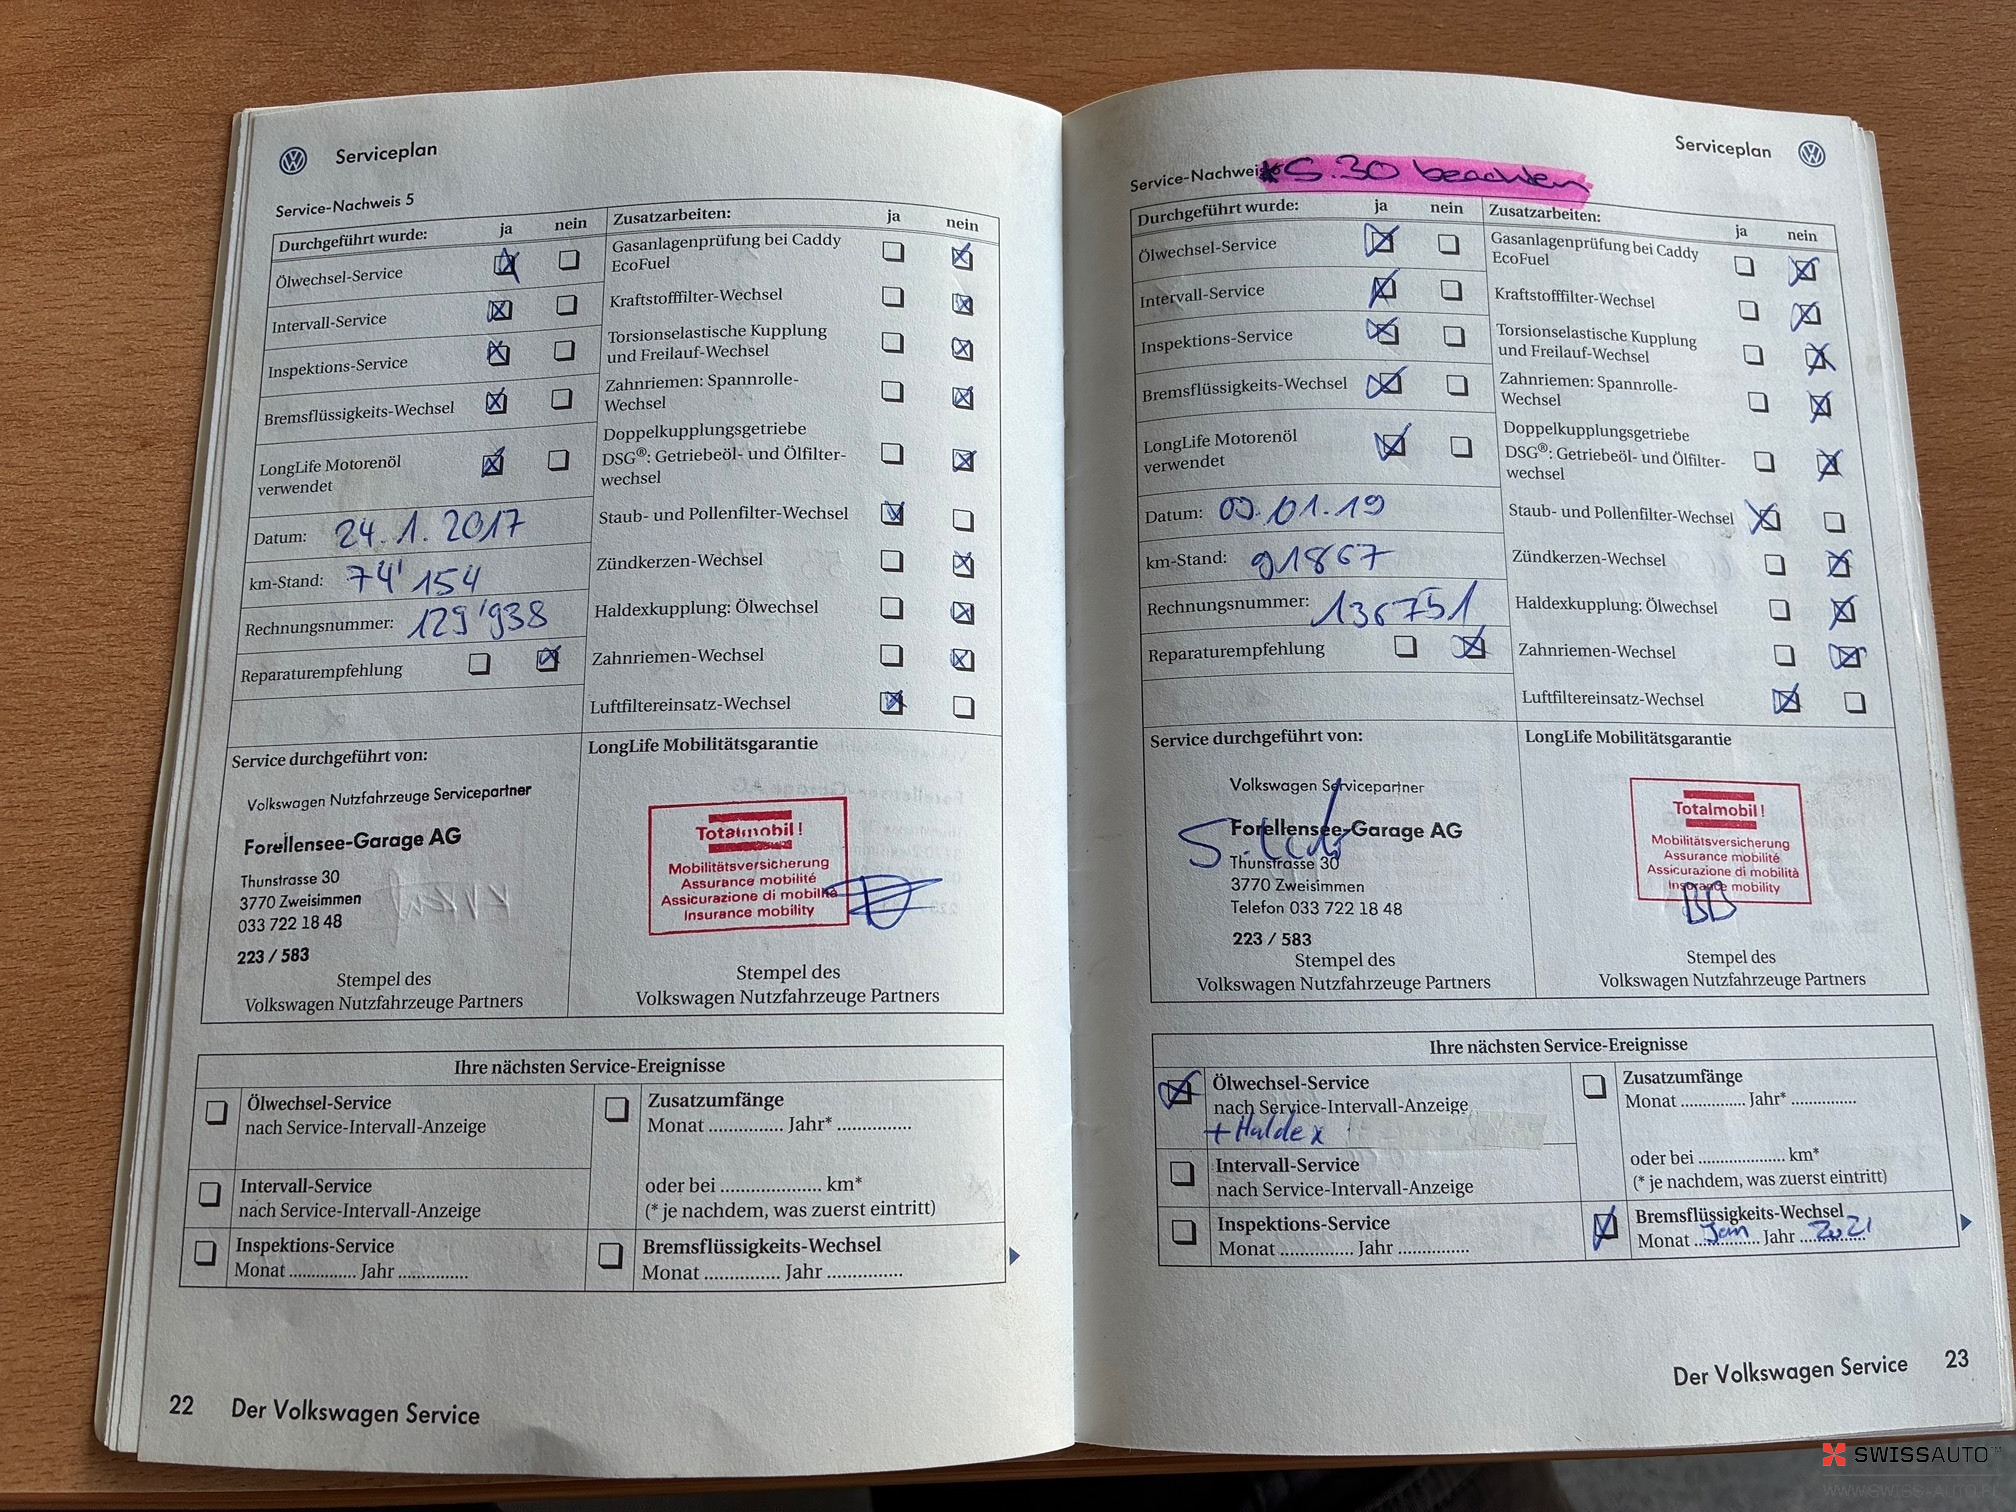 Serviceplan
Service-Nachweis 5
Durchgeführt wurde: ja nein
Ölwechsel-Service
Intervall-Service
Inspektions-Service
Bremsflüssigkeits-Wechsel
LongLife Motorenöl
verwendet
Datum: 24.1.2017
km-Stand: 74'154
Rechnungsnummer: 129'938
Reparaturempfehlung
Zusatzarbeiten: ja nein
Gasanlagenprüfung bei Caddy
EcoFuel
Kraftstofffilter-Wechsel
Torsionselastische Kupplung
und Freilauf-Wechsel
Zahnriemen: Spannrolle-
Wechsel
Doppelkupplungsgetriebe
DSG®: Getriebeöl- und Ölfilter-
wechsel
Staub- und Pollenfilter-Wechsel
Zündkerzen-Wechsel
Haldexkupplung: Ölwechsel
Zahnriemen-Wechsel
Luftfiltereinsatz-Wechsel
Service durchgeführt von:
Volkswagen Nutzfahrzeuge Servicepartner
Forellensee-Garage AG
Thunstrasse 30
3770 Zweisimmen
033 722 18 48
223 / 583
Stempel des
Volkswagen Nutzfahrzeuge Partners
LongLife Mobilitätsgarantie
Totalmobil!
Mobilitätsversicherung
Assurance mobilité
Assicurazione di mobilità
Insurance mobility
Stempel des
Volkswagen Nutzfahrzeuge Partners
Ihre nächsten Service-Ereignisse
Ölwechsel-Service
nach Service-Intervall-Anzeige
Intervall-Service
nach Service-Intervall-Anzeige
Inspektions-Service
Monat ............... Jahr ...............
Zusatzumfänge
Monat ............... Jahr* ...............
oder bei .................... km*
(* je nachdem, was zuerst eintritt)
Bremsflüssigkeits-Wechsel
Monat ............... Jahr ...............
22 Der Volkswagen Service
Serviceplan
Service-Nachweis
*S. 30 beachten
Durchgeführt wurde: ja nein
Ölwechsel-Service
Intervall-Service
Inspektions-Service
Bremsflüssigkeits-Wechsel
LongLife Motorenöl
verwendet
Datum: 09.01.19
km-Stand: 91867
Rechnungsnummer: 136751
Reparaturempfehlung
Zusatzarbeiten: ja nein
Gasanlagenprüfung bei Caddy
EcoFuel
Kraftstofffilter-Wechsel
Torsionselastische Kupplung
und Freilauf-Wechsel
Zahnriemen: Spannrolle-
Wechsel
Doppelkupplungsgetriebe
DSG®: Getriebeöl- und Ölfilter-
wechsel
Staub- und Pollenfilter-Wechsel
Zündkerzen-Wechsel
Haldexkupplung: Ölwechsel
Zahnriemen-Wechsel
Luftfiltereinsatz-Wechsel
Service durchgeführt von:
Volkswagen Servicepartner
Forellensee-Garage AG
Thunstrasse 30
3770 Zweisimmen
Telefon 033 722 18 48
223 / 583
Stempel des
Volkswagen Nutzfahrzeuge Partners
LongLife Mobilitätsgarantie
Totalmobil!
Mobilitätsversicherung
Assurance mobilité
Assicurazione di mobilità
Insurance mobility
Stempel des
Volkswagen Nutzfahrzeuge Partners
Ihre nächsten Service-Ereignisse
Ölwechsel-Service
nach Service-Intervall-Anzeige
+ Haldex
Intervall-Service
nach Service-Intervall-Anzeige
Inspektions-Service
Monat ............... Jahr ...............
Zusatzumfänge
Monat ............... Jahr* ...............
oder bei .................... km*
(* je nachdem, was zuerst eintritt)
Bremsflüssigkeits-Wechsel
Monat Jan Jahr 2021
Der Volkswagen Service 23
SWISSAUTO